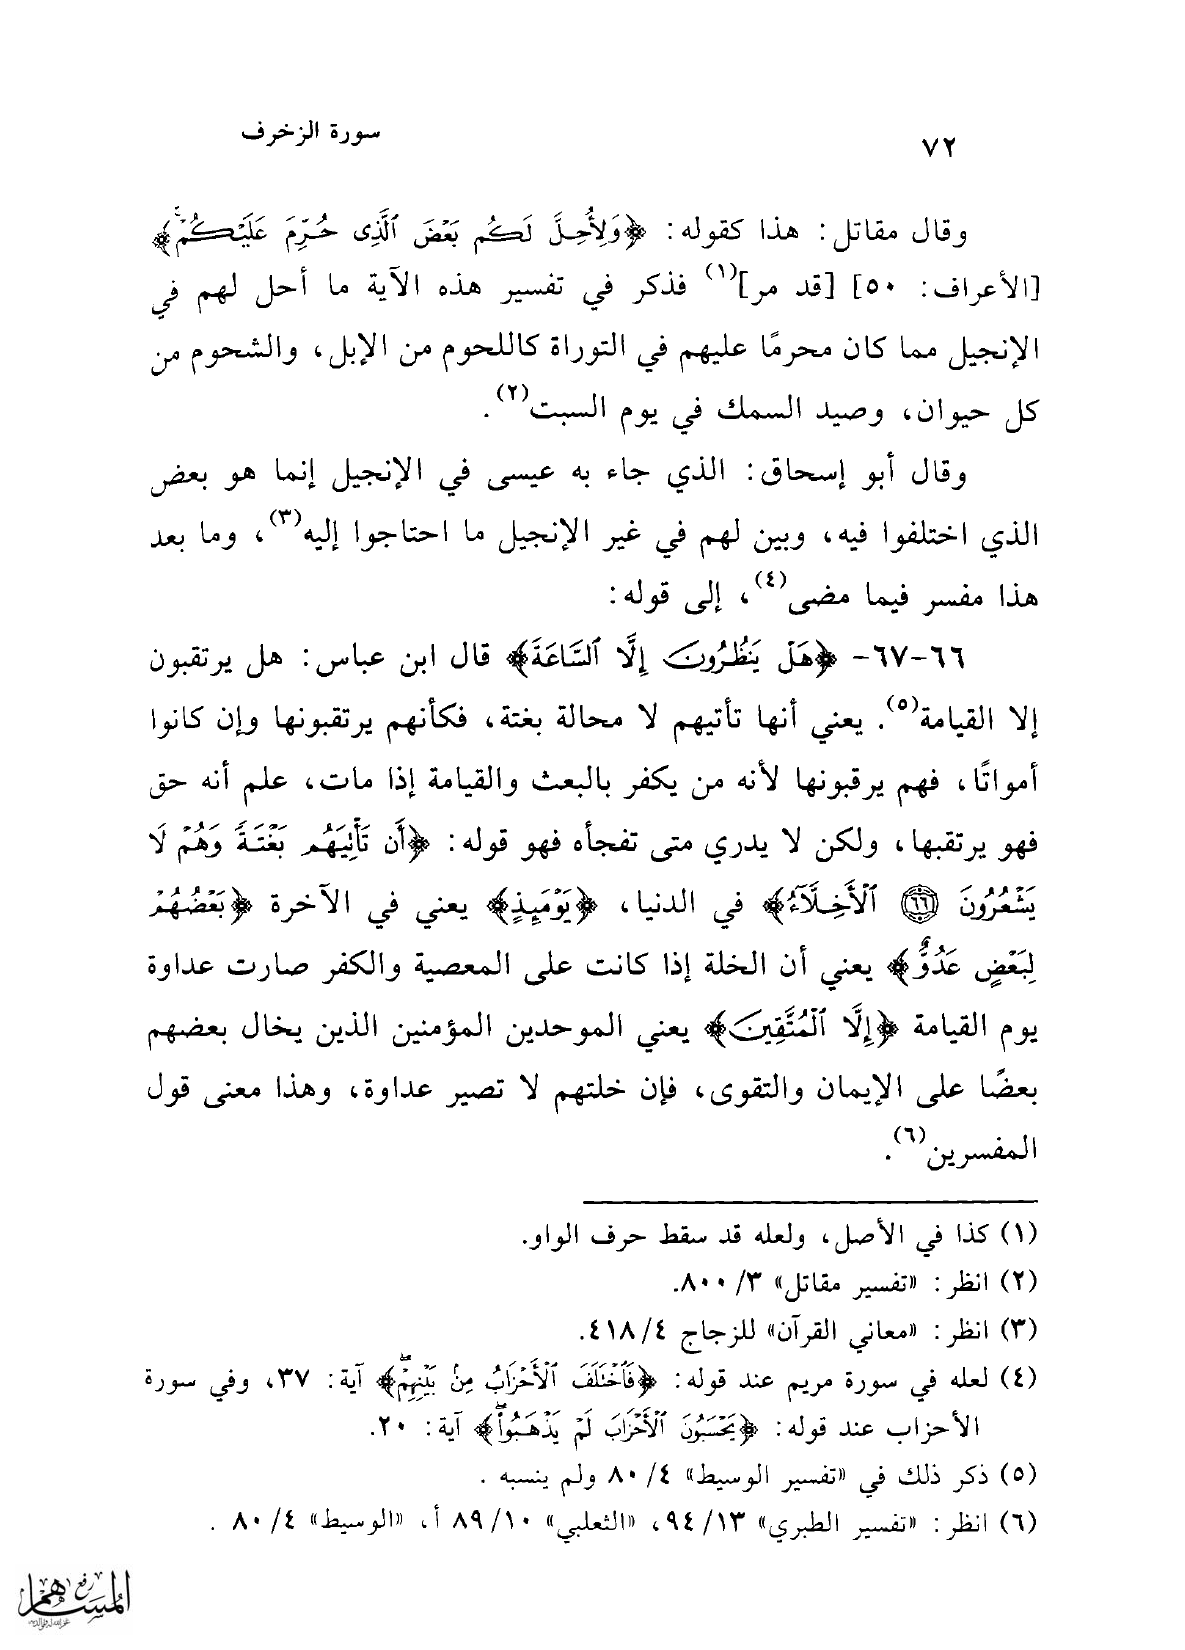 ٧٢
سورة الزخرف
وقال مقاتل: هذا كقوله: ﴿وَلِأُحِلَّ لَكُم بَعْضَ ٱلَّذِى حُرِّمَ عَلَيْكُمْ﴾
[الأعراف: ٥٠] [قد مر](١) فذكر في تفسير هذه الآية ما أحل لهم في
الإنجيل مما كان محرمًا عليهم في التوراة كاللحوم من الإبل، والشحوم من
كل حيوان، وصيد السمك في يوم السبت(٢).
وقال أبو إسحاق: الذي جاء به عيسى في الإنجيل إنما هو بعض
الذي اختلفوا فيه، وبين لهم في غير الإنجيل ما احتاجوا إليه(٣)، وما بعد
هذا مفسر فيما مضى(٤)، إلى قوله:
٦٦-٦٧- ﴿هَلْ يَنظُرُونَ إِلَّا ٱلسَّاعَةَ﴾ قال ابن عباس: هل يرتقبون
إلا القيامة(٥). يعني أنها تأتيهم لا محالة بغتة، فكأنهم يرتقبونها وإن كانوا
أمواتًا، فهم يرقبونها لأنه من يكفر بالبعث والقيامة إذا مات، علم أنه حق
فهو يرتقبها، ولكن لا يدري متى تفجأه فهو قوله: ﴿أَن تَأْتِيَهُم بَغْتَةً وَهُمْ لَا
يَشْعُرُونَ ٦٦ ٱلْأَخِلَّآءُ﴾ في الدنيا، ﴿يَوْمَئِذٍ﴾ يعني في الآخرة ﴿بَعْضُهُمْ
لِبَعْضٍ عَدُوٌّ﴾ يعني أن الخلة إذا كانت على المعصية والكفر صارت عداوة
يوم القيامة ﴿إِلَّا ٱلْمُتَّقِينَ﴾ يعني الموحدين المؤمنين الذين يخال بعضهم
بعضًا على الإيمان والتقوى، فإن خلتهم لا تصير عداوة، وهذا معنى قول
المفسرين(٦).
(١) كذا في الأصل، ولعله قد سقط حرف الواو.
(٢) انظر: «تفسير مقاتل» ٣/ ٨٠٠.
(٣) انظر: «معاني القرآن» للزجاج ٤/ ٤١٨.
(٤) لعله في سورة مريم عند قوله: ﴿فَٱخْتَلَفَ ٱلْأَحْزَابُ مِنۢ بَيْنِهِمْ﴾ آية: ٣٧، وفي سورة
الأحزاب عند قوله: ﴿يَحْسَبُونَ ٱلْأَحْزَابَ لَمْ يَذْهَبُوا۟﴾ آية: ٢٠.
(٥) ذكر ذلك في «تفسير الوسيط» ٤/ ٨٠ ولم ينسبه .
(٦) انظر: «تفسير الطبري» ١٣/ ٩٤، «الثعلبي» ١٠/ ٨٩ أ، «الوسيط» ٤/ ٨٠ .